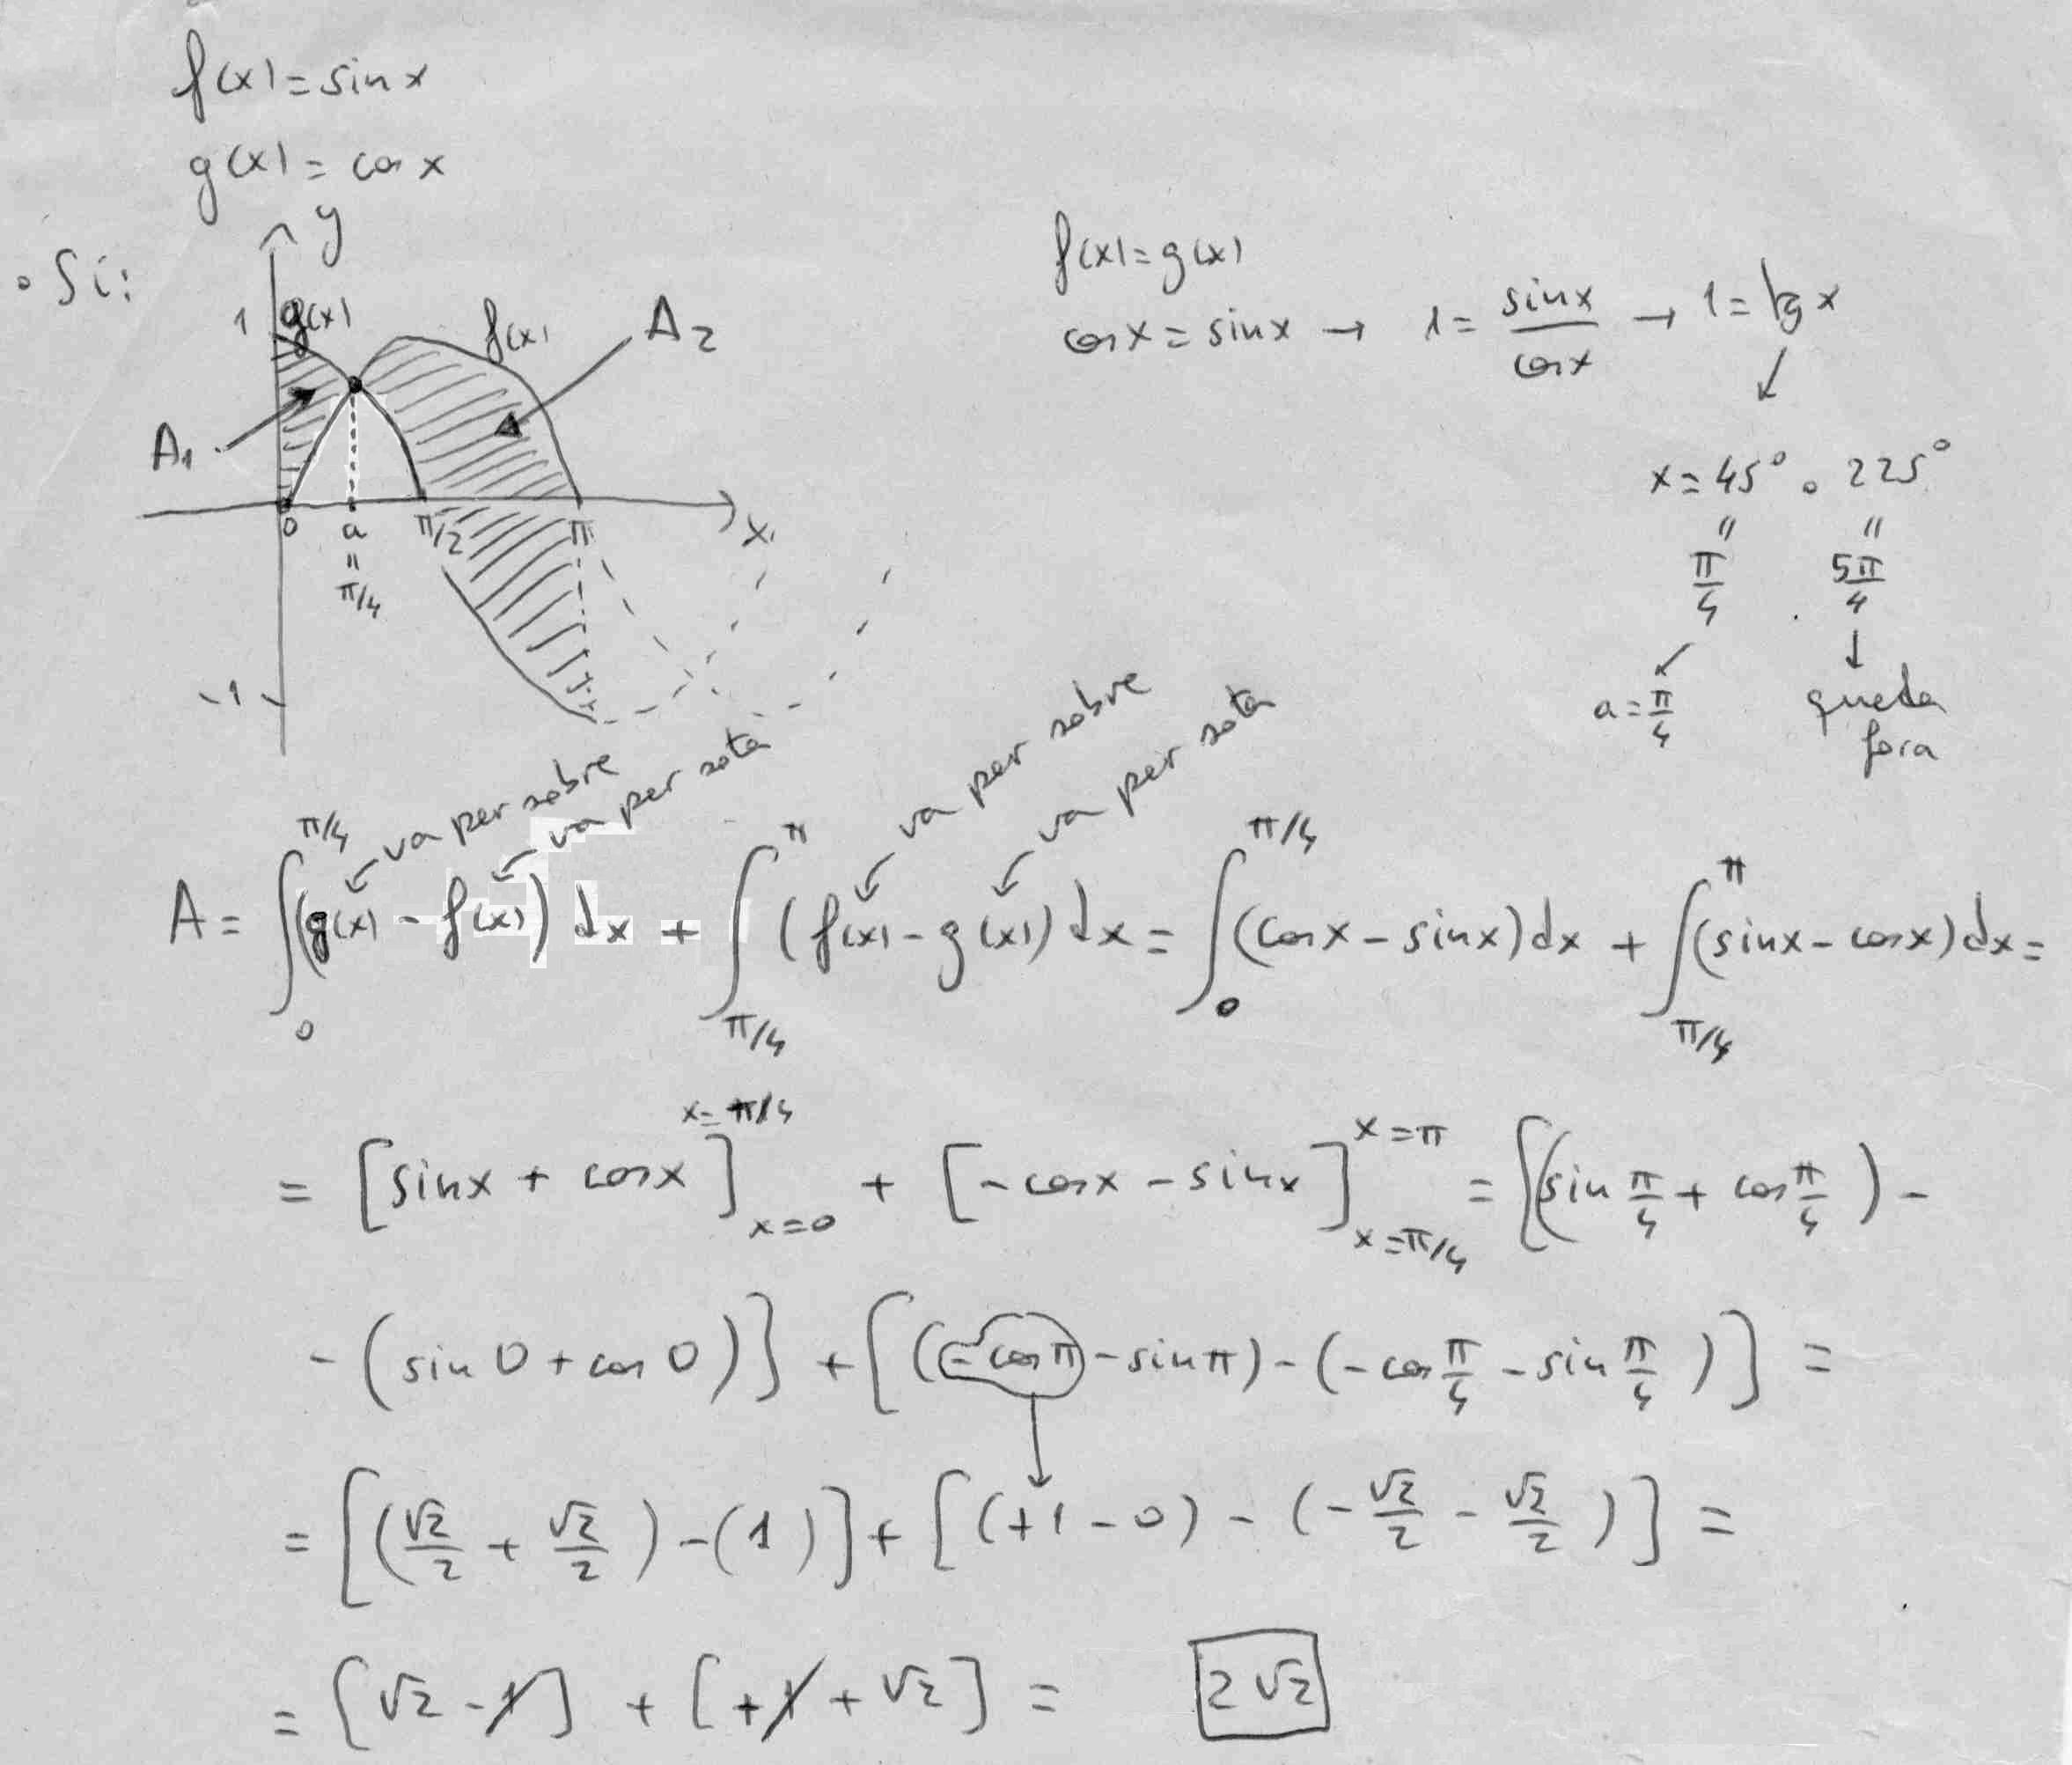 f(x) = sin x
g(x) = cos x
• Si:
y
1 g(x) f(x) A2
A1
0 a π/2 π x
"
π/4
-1
f(x) = g(x)
cos x = sin x → 1 = sin x / cos x → 1 = tg x
↓
x = 45° o 225°
" "
π/4 5π/4
↙ ↓
a = π/4 queda
fora
va per sobre va per sota va per sobre va per sota
A = ∫₀^{π/4} (g(x) - f(x)) dx + ∫_{π/4}^{π} (f(x) - g(x)) dx = ∫₀^{π/4} (cos x - sin x) dx + ∫_{π/4}^{π} (sin x - cos x) dx =
= [sin x + cos x]_{x=0}^{x=π/4} + [-cos x - sin x]_{x=π/4}^{x=π} = [(sin π/4 + cos π/4) -
- (sin 0 + cos 0)] + [(-cos π - sin π) - (-cos π/4 - sin π/4)] =
= [(√2/2 + √2/2) - (1)] + [(+1 - 0) - (-√2/2 - √2/2)] =
= [√2 - 1] + [+1 + √2] = 2√2